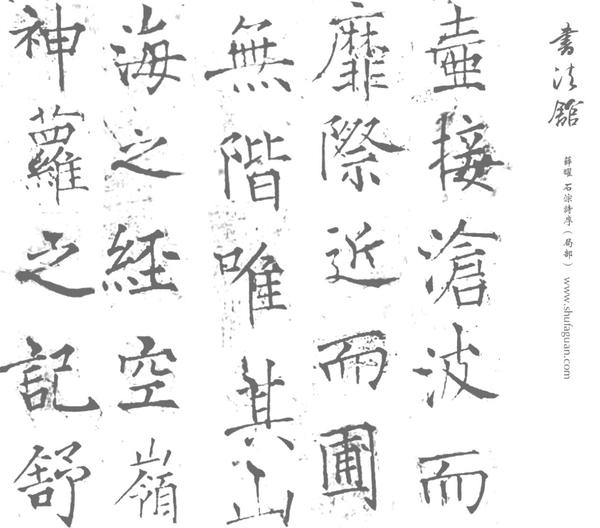 書法館
薛曜 石淙詩序（局部） www.shufaguan.com
壺接滄波而
靡際近而圃
無階唯其山
海之經空嶺
神蘿之記舒